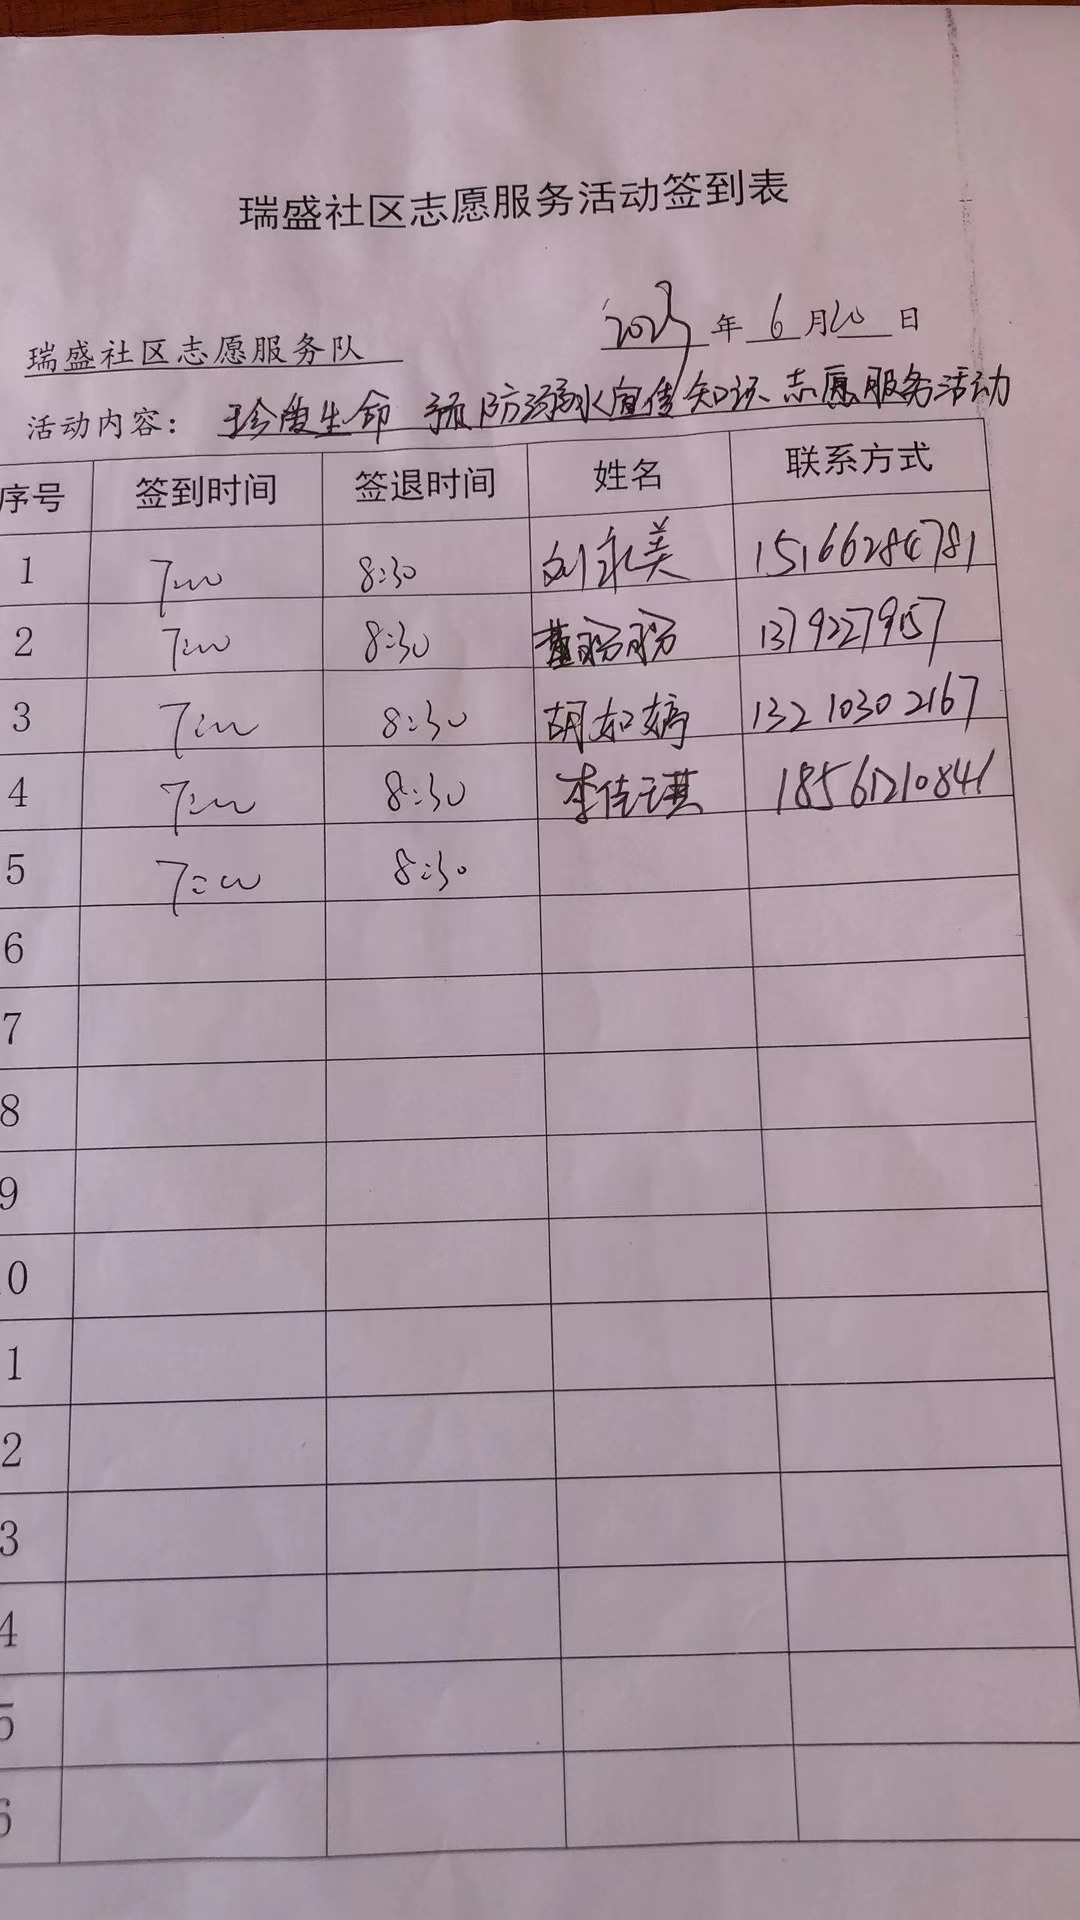 瑞盛社区志愿服务活动签到表
瑞盛社区志愿服务队 2023年 6 月20 日
活动内容： 珍爱生命 预防溺水宣传知识志愿服务活动
序号 签到时间 签退时间 姓名 联系方式
1 7:00 8:30 刘永美 15166284781
2 7:00 8:30 董盼盼
3 7:00 8:30 胡如婷 13210302167
4 7:00 8:30 李佳琪 18561210841
5 7:00 8:30
6
7
8
9
0
1
2
3
4
5
6